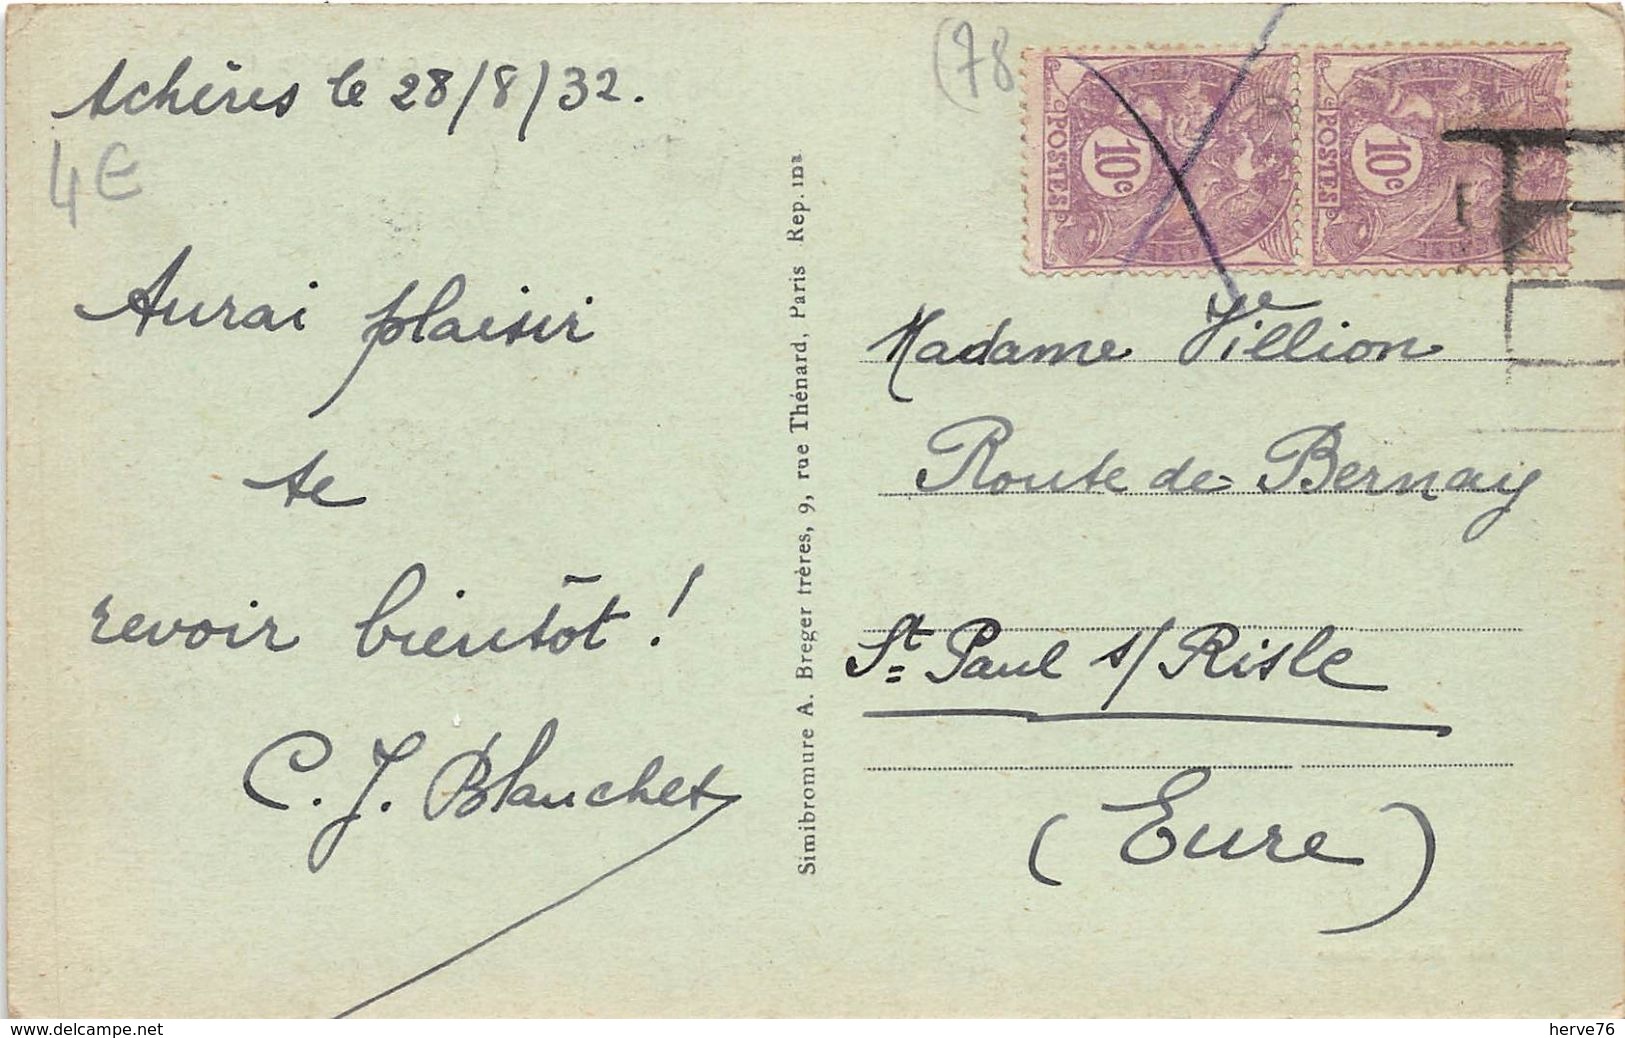 Achères le 28/8/32.
4E
Aurai plaisir
te
revoir bientôt !
C. J. Blanchet
Simibromure A. Breger frères, 9, rue Thénard, Paris Rep. int
(78
POSTES
10c
POSTES
10c
Madame Vve Villion
Route de Bernay
St Paul s/ Risle
(Eure)
www.delcampe.net
herve76